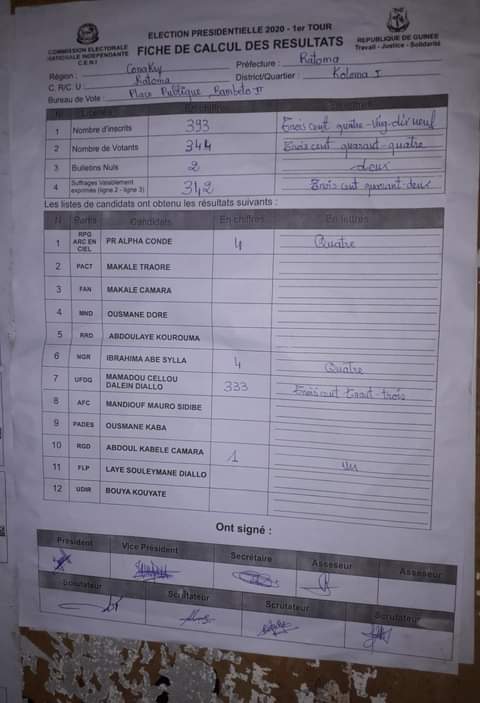 COMMISSION ELECTORALE
NATIONALE INDEPENDANTE
C.E.N.I
ELECTION PRESIDENTIELLE 2020 - 1er TOUR
FICHE DE CALCUL DES RESULTATS
REPUBLIQUE DE GUINEE
Travail - Justice - Solidarité
Région : Conakry Préfecture : Ratoma
C. R/C. U : Ratoma District/Quartier : Koloma I
Bureau de Vote : Place Publique Bambéto II
1 Nombre d'inscrits 393 Trois cent quatre-ving-dix neuf
2 Nombre de Votants 344 Trois cent quarant-quatre
3 Bulletins Nuls 2 deux
4 Suffrages Valablement exprimés (ligne 2 - ligne 3) 342 Trois cent quarant-deux
Les listes de candidats ont obtenu les résultats suivants :
N Partis Candidats En chiffres En lettres
1 RPG ARC EN CIEL PR ALPHA CONDE 4 Quatre
2 PACT MAKALE TRAORE
3 FAN MAKALE CAMARA
4 MND OUSMANE DORE
5 RRD ABDOULAYE KOUROUMA
6 NGR IBRAHIMA ABE SYLLA 4 Quatre
7 UFDG MAMADOU CELLOU DALEIN DIALLO 333 Trois cent trent-trois
8 AFC MANDIOUF MAURO SIDIBE
9 PADES OUSMANE KABA
10 RGD ABDOUL KABELE CAMARA 1 un
11 FLP LAYE SOULEYMANE DIALLO
12 UDIR BOUYA KOUYATE
Ont signé :
Président Vice Président Secrétaire Asseseur Asseseur
Scrutateur Scrutateur Scrutateur Scrutateur